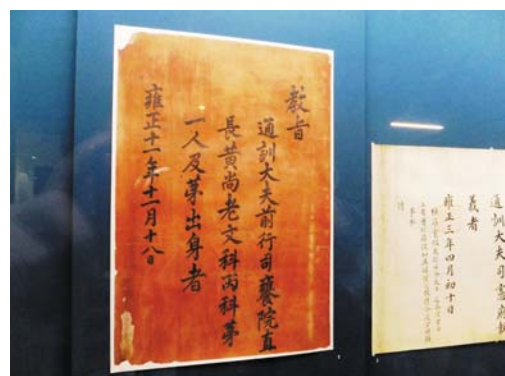 教旨
通訓大夫前行司饔院直
長黃尚老文科丙科茅
一人及茅出身者
雍正十一年十二月十八日
通訓大夫司憲府執
義者
雍正三年四月初十日